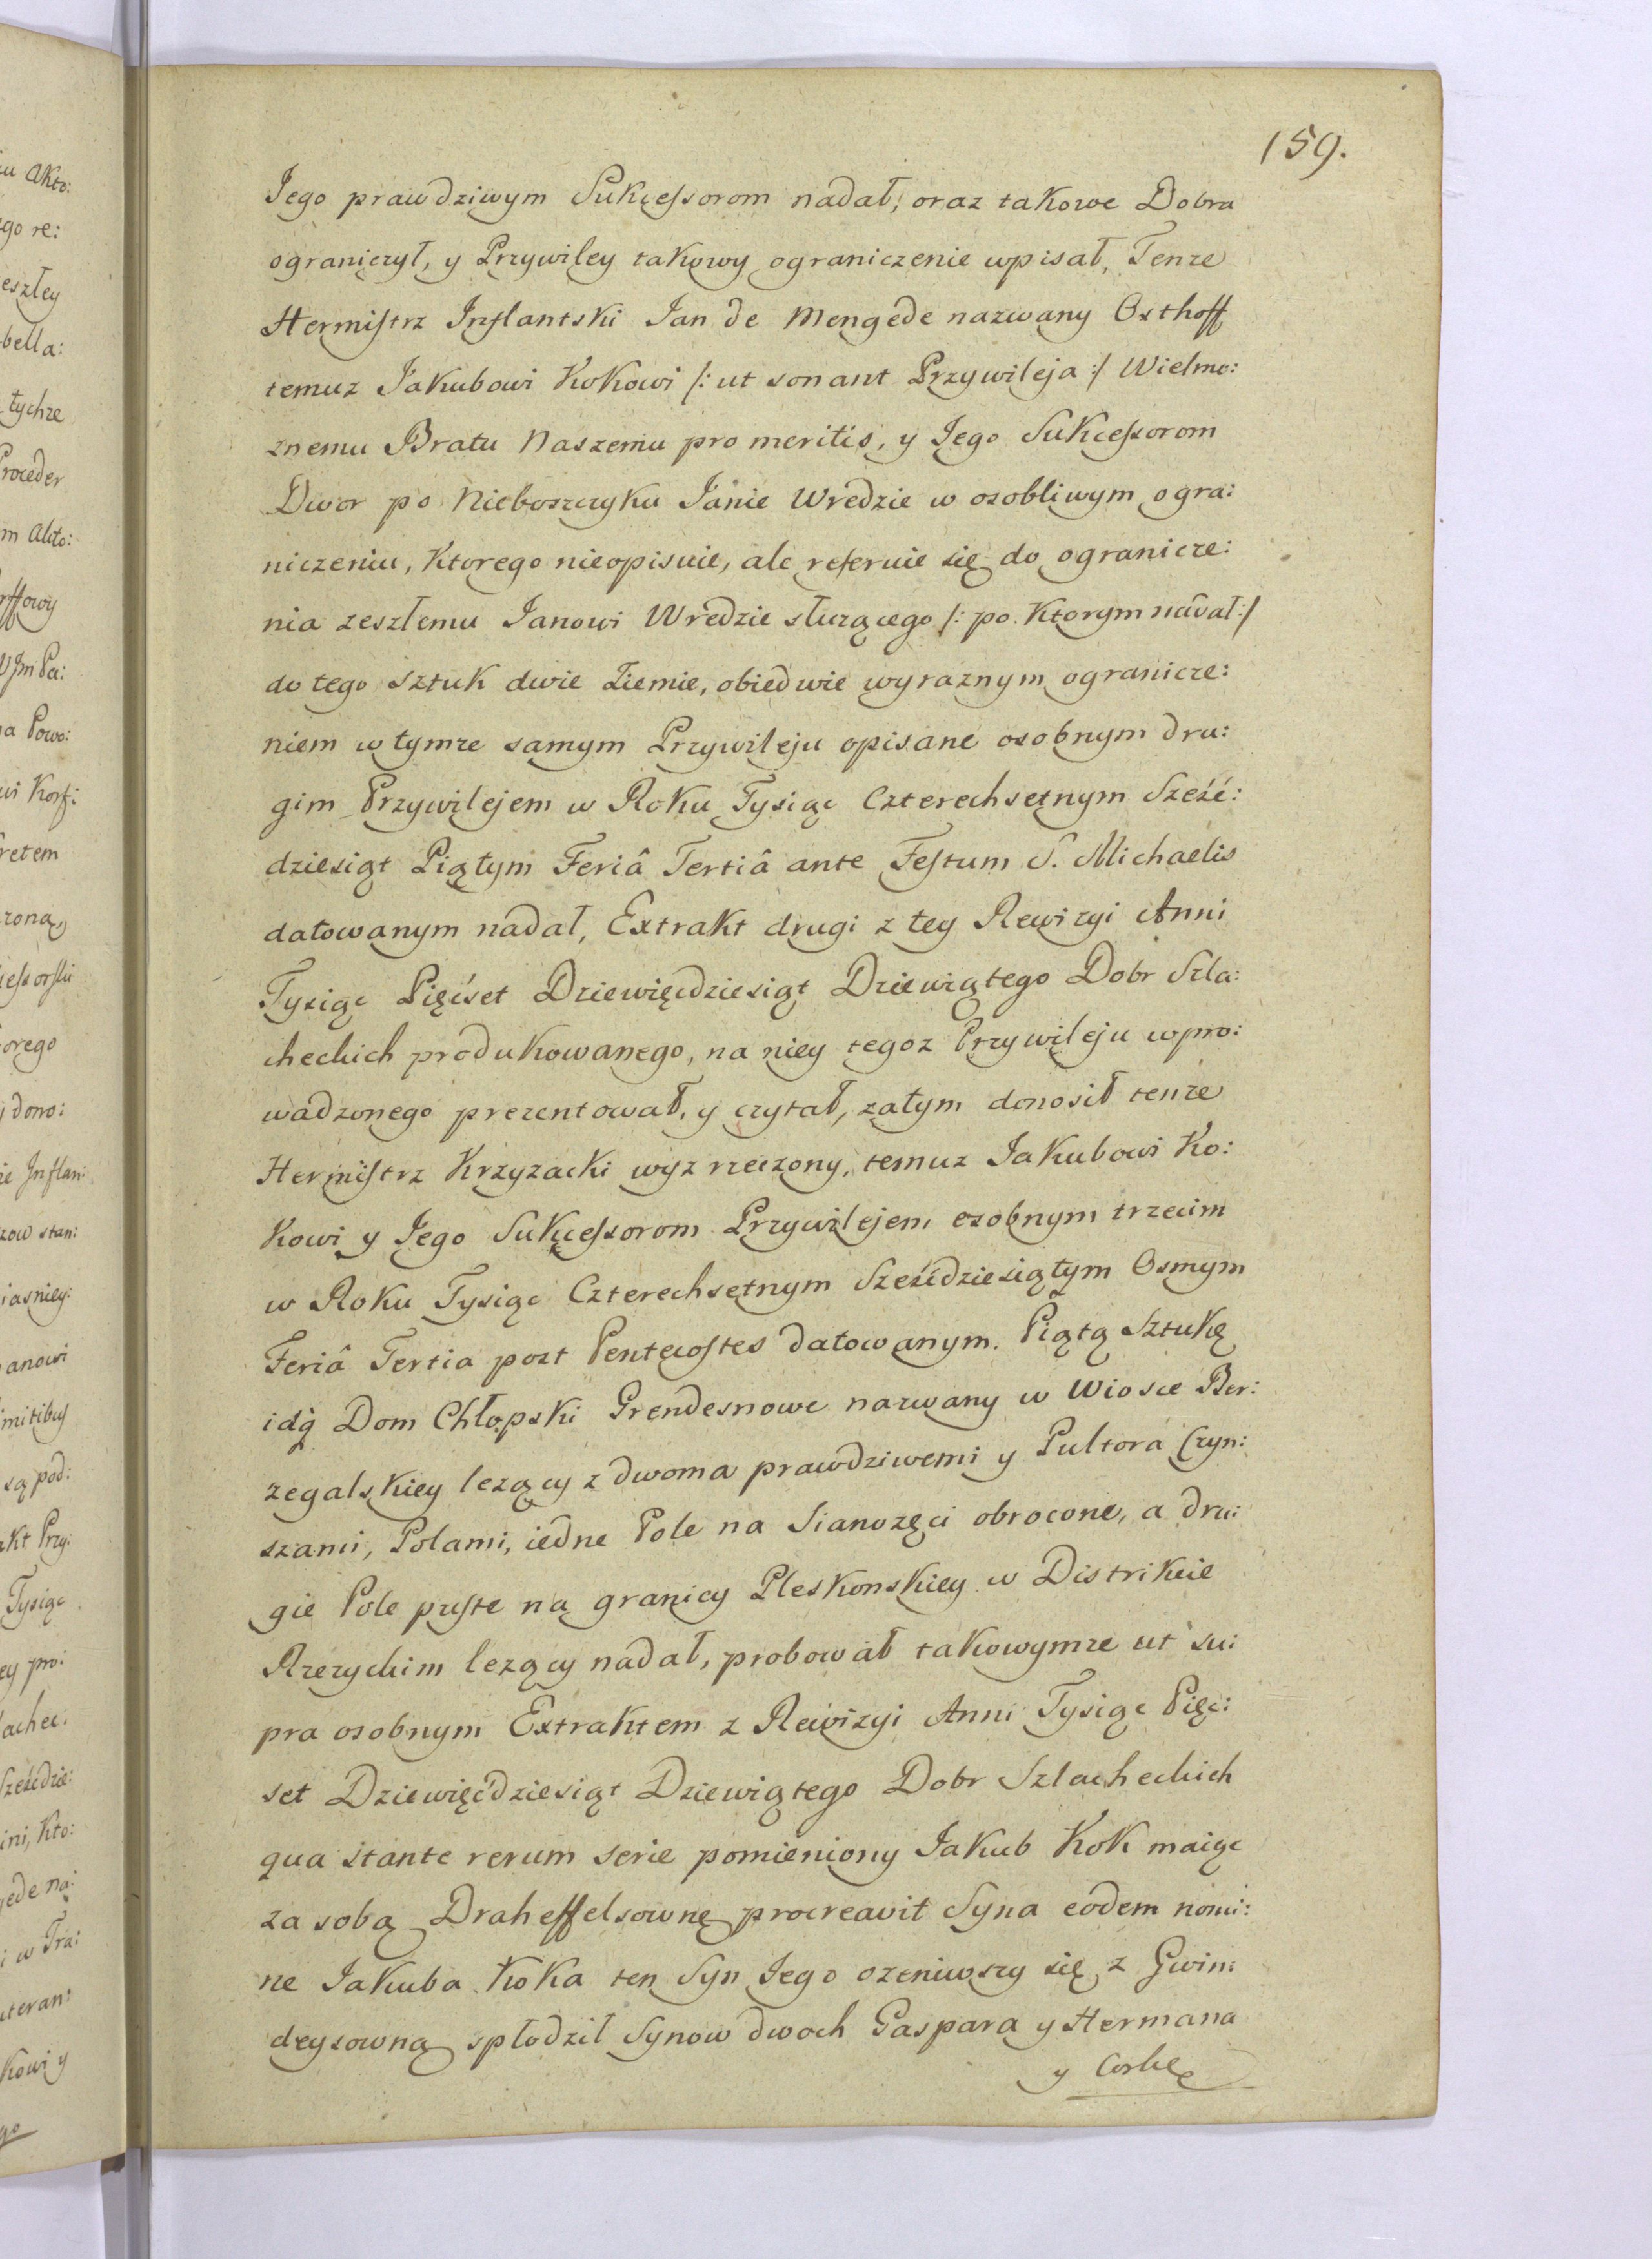 159.
Iego prawdziwym Sukcessorom nadał, oraz takowe Dobra
ograniczył, y Przywiley takowy ograniczenie wpisał, Tenze
Hermistrz Inflantski Ian de Mengede nazwany Osthoff
temuz Iakubowi Kokowi /: ut sonant Przywileja :/ Wielmo:
znemu Bratu Naszemu pro meritis, y Iego Sukcessorom
Dwor po Nieboszczyku Ianie Wredzie w osobliwym ogra:
niczeniu, Ktorego nieopisuie, ale referuie się do ogranicze:
nia zeszłemu Ianowi Wredzie słuzącego /: po Ktorym nadał :/
do tego sztuk dwie Ziemie, obiedwie wyraznym ogranicze:
niem w tymze samym Przywileju opisane osobnym dru:
gim Przywilejem w Roku Tysiąc Czterechsetnym Sześć:
dziesiąt Piątym Feriâ Tertiâ ante Festum S. Michaelis
datowanym nadał, Extrakt drugi z tey Rewizyi Anni
Tysiąc Pięćset Dziewięcdziesiąt Dziewiątego Dobr Szla:
checkich produkowanego, na niey tegoz Przywileju wpro:
wadzonego prezentował, y czytał, zatym donosił tenze
Hermistrz Krzyzacki wyz rzeczony, temuz Iakubowi Ko:
kowi y Iego Sukcessorom Przywilejem osobnym trzecim
w Roku Tysiąc Czterechsetnym Sześćdziesiątym Osmym
Feriâ Tertia post Pentecostes datowanym. Piątą Sztukę
idq̀ Dom Chłopski Grendesnowe nazwany w Wiosce Ber:
zegalskiey lezący z dwoma prawdziwemi y Pultora Czyn:
szami, Polami, iedne Pole na Sianozęci obrocone, a dru:
gie Pole puste na granicy Pleskonskiey w Distrikcie
Rzezyckim lezący nadał, probował takowymze ut su:
pra osobnym Extraktem z Rewizyi Anni Tysiąc Pięc:
set Dziewięćdziesiąt Dziewiątego Dobr Szlacheckich
qua stante rerum serie pomieniony Iakub Kok maiąc
za sobą Draheffelsownę procreavit Syna eodem nomi:
ne Iakuba Koka ten Syn Iego ozeniwszy się z Gwin:
deysowną spłodził Synow dwoch Gaspara y Hermana
y Corkę